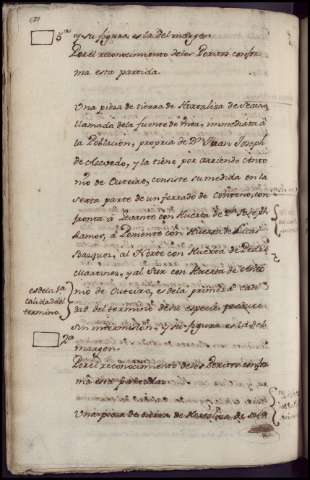 5ª y su figura es la del margen
Por el reconocimiento de los Peritos confor
ma esta partida.
Una pieza de tierra de Hortaliza de
llamada de la fuente de immediata à
la Poblacion, propria de Dn. Juan Joseph
de Azevedo, y la tiene por arriendo Anto
nio de Outeiro, consiste su medida en la
sexta parte de un ferrado de Centeno, con
fronta à Levante con Huerta de
à Poniente con Huerta de
Bauquez, al Norte con Huerta de Pedro
y al Sur con Huerta de Anto
nio de Outeiro, es de la primera cali
dad del termino de su especie, produce
sin intermision, y su figura es la del
margen.
es de la 1ª
calidad del
termino
2ª
Por el reconocimiento de los Peritos confor
ma esta partida.
Una pieza de tierra de Hortaliza de